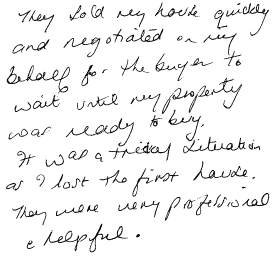 They sold my house quickly
and negotiated on my
behalf for the buyer to
wait until my property
was ready to buy.
It was a tricky situation
as I lost the first house.
They were very professional
& helpful.